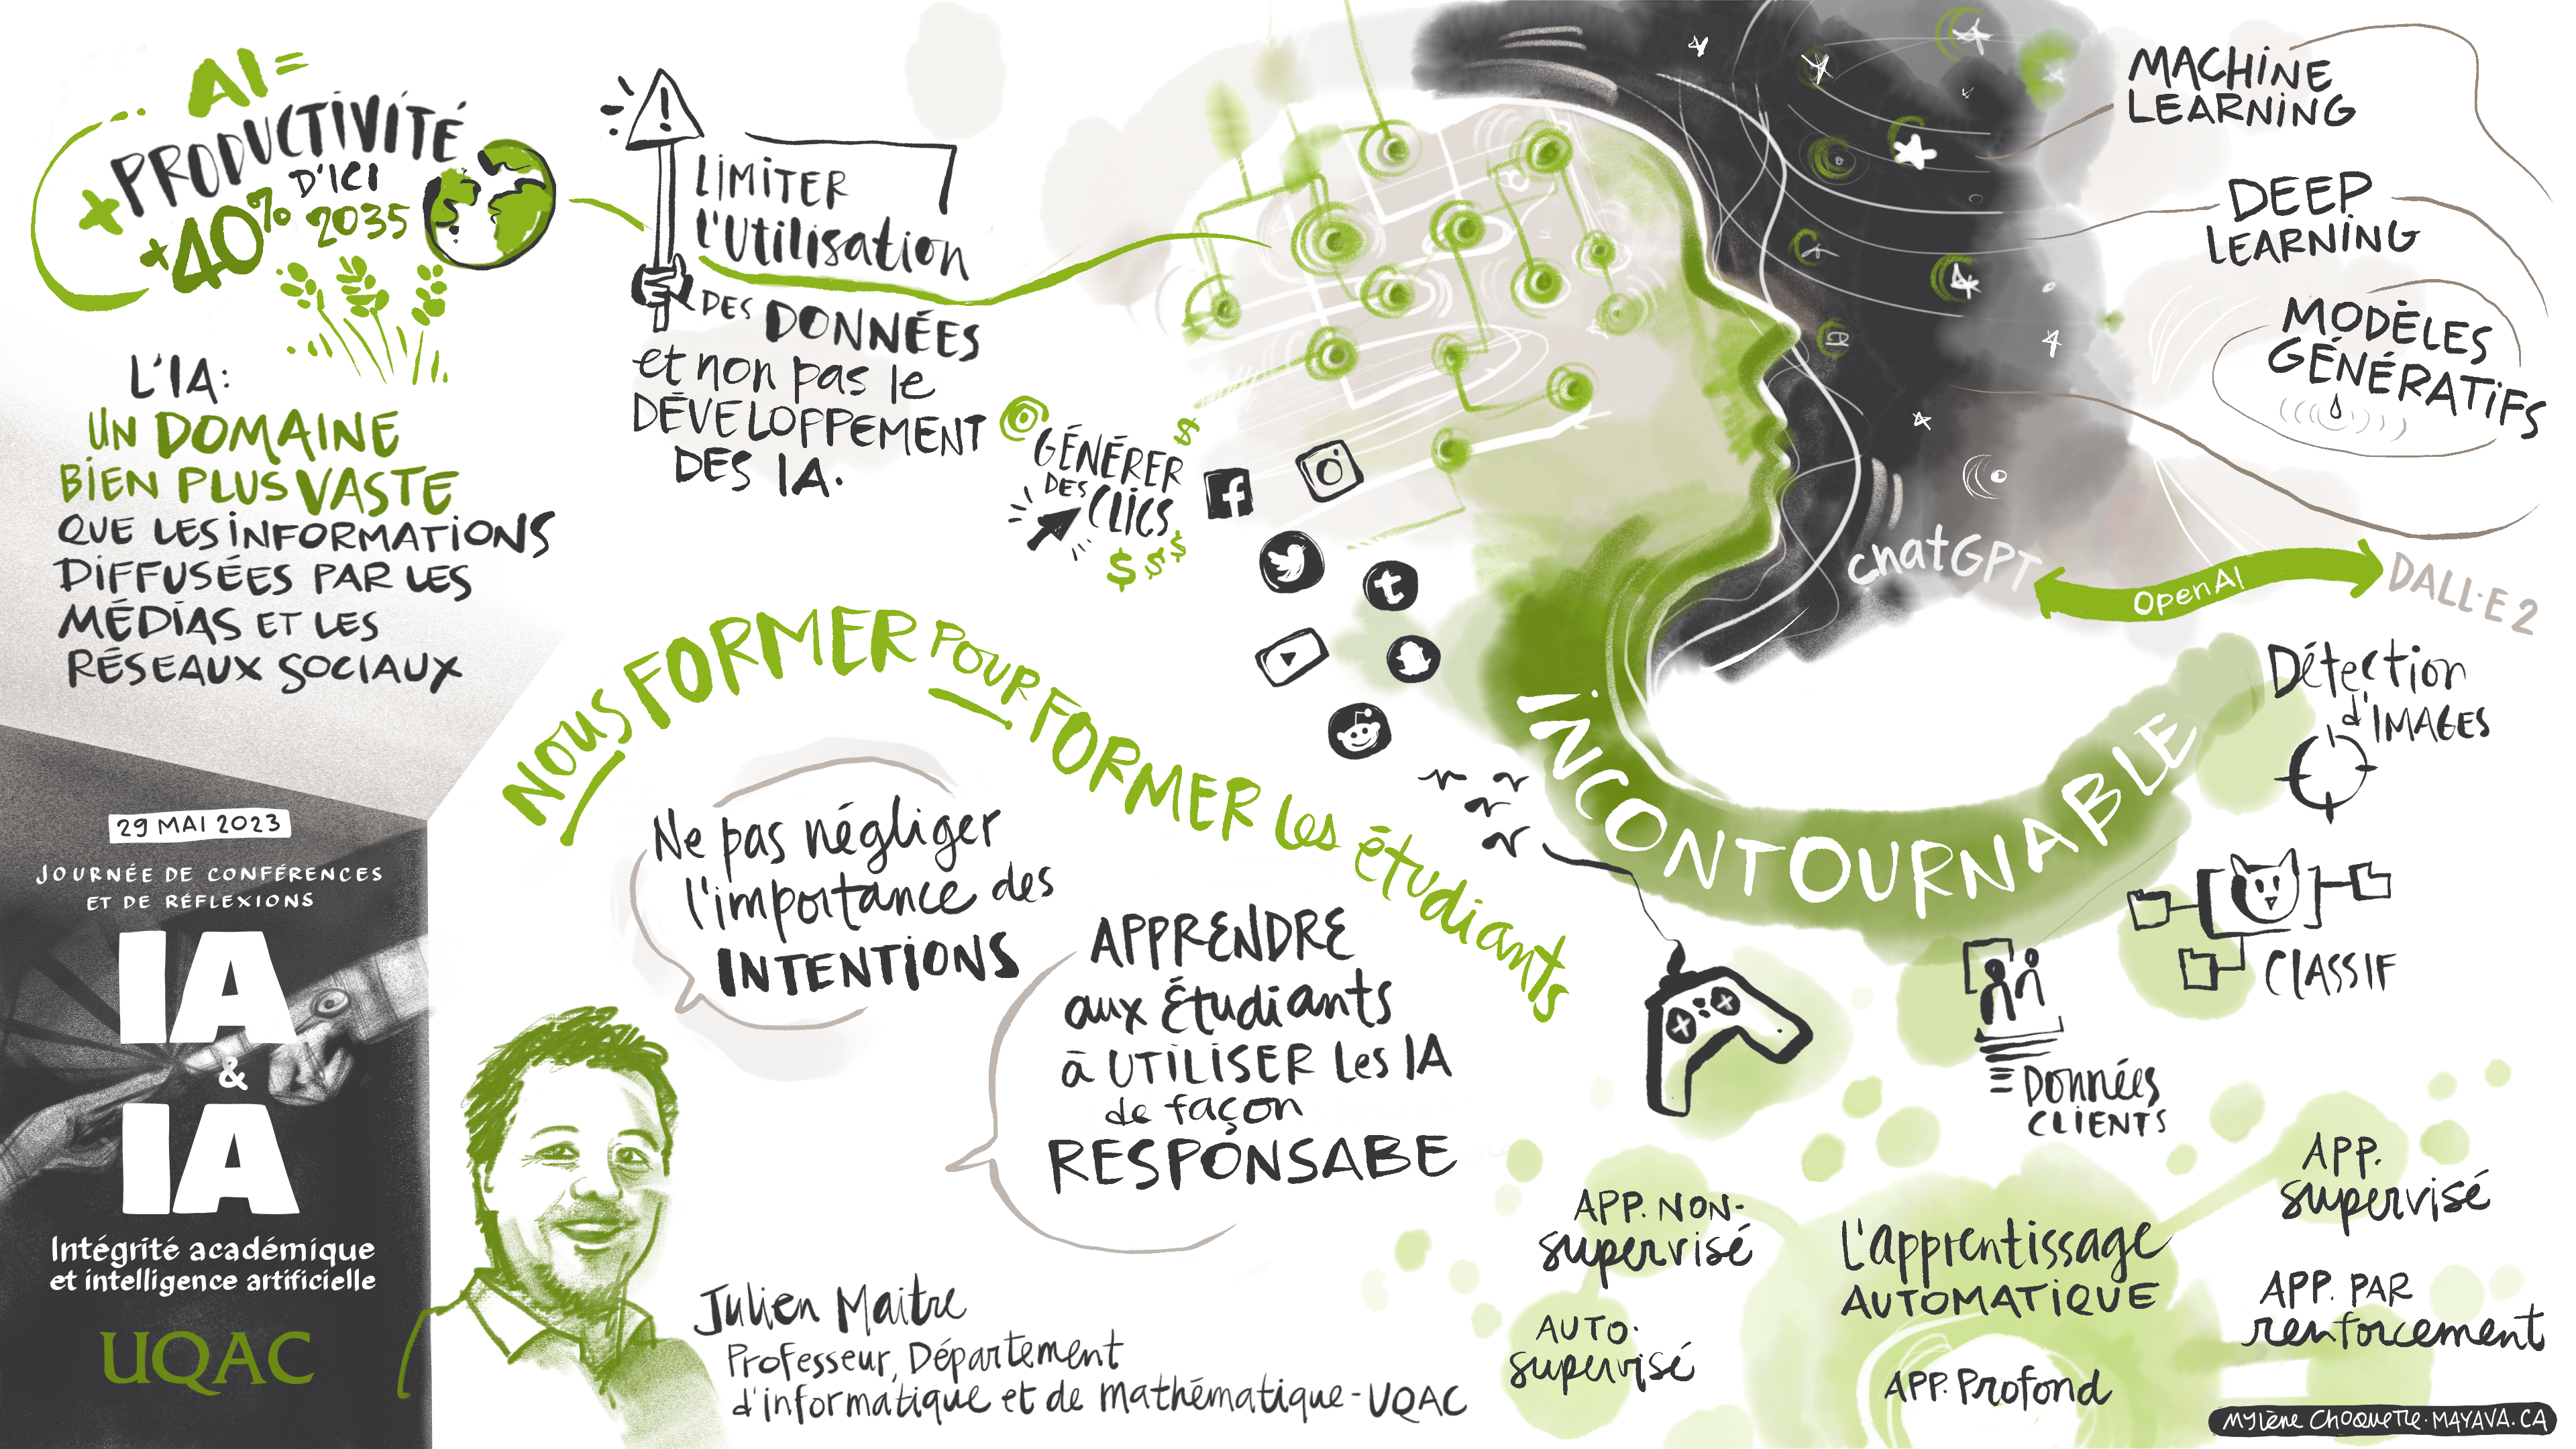 AI=
+ PRODUCTIVITÉ
D'ICI
+40% 2035
L'IA:
UN DOMAINE
BIEN PLUS VASTE
QUE LES INFORMATIONS
DIFFUSÉES PAR LES
MÉDIAS ET LES
RÉSEAUX SOCIAUX
!
LIMITER
l'Utilisation
DES DONNÉES
et non pas le
DÉVELOPPEMENT
DES IA.
@
GÉNÉRER
DES
CLICS
$
$ $ $
MACHINE
LEARNING
DEEP
LEARNING
MODÈLES
GÉNÉRATIFS
chatGPT
OpenAI
DALL·E 2
INCONTOURNABLE
Détection
d'IMAGES
CLASSIF
DONNÉES
CLIENTS
NOUS FORMER POUR FORMER les étudiants
Ne pas négliger
l'importance des
INTENTIONS
APPRENDRE
aux étudiants
à UTILISER les IA
de façon
RESPONSABE
Julien Maitre
Professeur, Département
d'informatique et de mathématique - UQAC
29 MAI 2023
JOURNÉE DE CONFÉRENCES
ET DE RÉFLEXIONS
IA
&
IA
Intégrité académique
et intelligence artificielle
UQAC
APP. NON-
supervisé
AUTO-
supervisé
L'apprentissage
AUTOMATIQUE
APP. Profond
APP.
supervisé
APP. PAR
renforcement
MYLÈNE CHOQUETTE · MAYAVA.CA